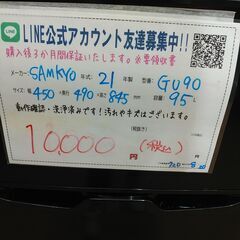 LINE公式アカウント友達募集中!!
購入後3か月間保証いたします。※要領収書
メーカー SAMKYO 年式: 21年製 型番: GU90
サイズ: 幅450×奥行490×高さ845mm 容量: 95L
動作確認・洗浄済みです!汚れやキズはございます。
(税抜き)
10,000円 (税込)